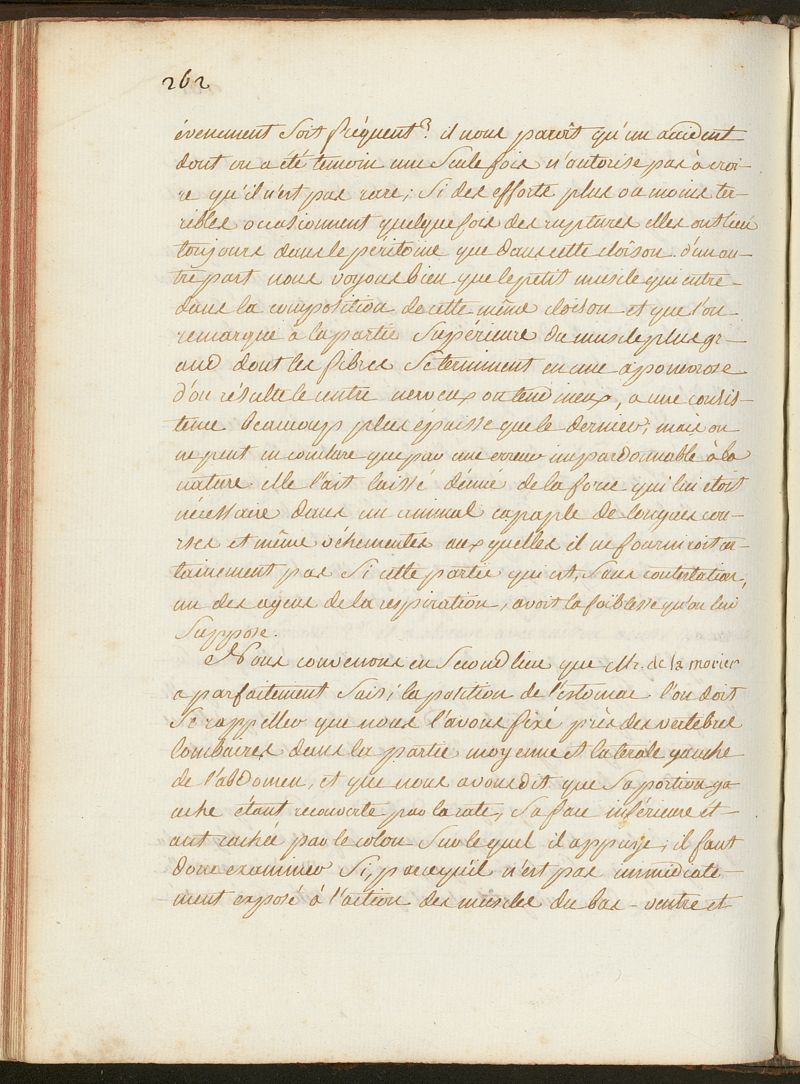 262
évenement soit fréquent? il nous paroît qu'un accident
dont on a été temoin une seule fois n'autorise pas à croi-
re qu'il n'est pas rare; si des efforts plus ou moins ter-
ribles occasionnent quelque fois des ruptures elles ont lieu
toujours dans le péritoine que dans cette cloison. d'un au-
tre part nous voyons bien que le petit muscle qui entre
dans la composition de cette même cloison et que l'on
remarque à la partie supérieure du muscle plus gr-
and dont les fibres se terminent en une aponevrose
d'ou résulte le centre nerveux ou tendineux, a une consis-
tence beaucoup plus épaisse que le dernier; mais on
ne peut in conclure que par une erreur impardonnable à la
nature elle l'ait laissé dénué de la force qui lui étoit
nécéssaire dans un animal capaple de longues cou-
rses et même véhementes aux quelles il ne fourniroit cer-
tainement pas si cette partie qui est, sans contestation,
un des agens de la respiration, avoit la foiblesse qu'on lui
suppose.
Nous convenons en second lieu que Mr. de la morier
a parfaitement saisi la position de l'estomac l'on doit
se rappeller que nous l'avons fixé près des vertebres
lombaires dans la partie moyenne et laterale gauche
de l'abdomen, et que nous avons dit que sa portion ga
uche étant recouverte par la rate, sa face inférieure ét-
ant cachée par le colon sur le quel il appuye; il faut
donc examiner si, parcequ'il n'est pas immédiate-
ment exposé à l'action des muscles du bas-ventre et